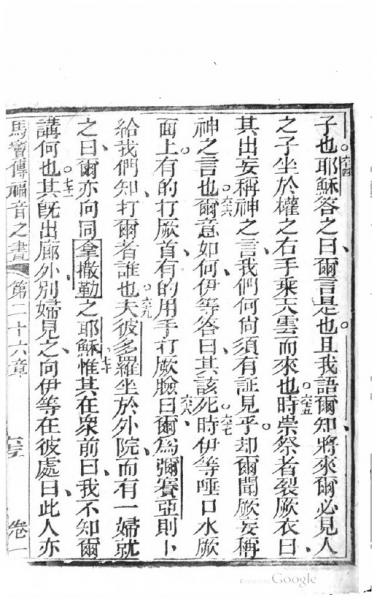 子也六四耶穌答之曰爾言是也且我語爾知將來爾必見人
之子坐於權之右手乘天雲而來也六五時崇祭者裂厥衣曰
其出妄稱神之言我們何尚須有証見乎却爾聞厥妄稱
神之言也六六爾意如何伊等答曰其該死六七時伊等唾口水厥
面上有的打厥首有的用手打厥臉六八曰爾為彌賽亞則卜
給我們知打爾者誰也六九夫彼多羅坐於外院而有一婦就
之曰爾亦向同拿撒勒之耶穌七十惟其在眾前曰我不知爾
講何也七一其既出廊外別婦見之向伊等在彼處曰此人亦
馬竇傳福音之書 第二十六章 卷一
Google